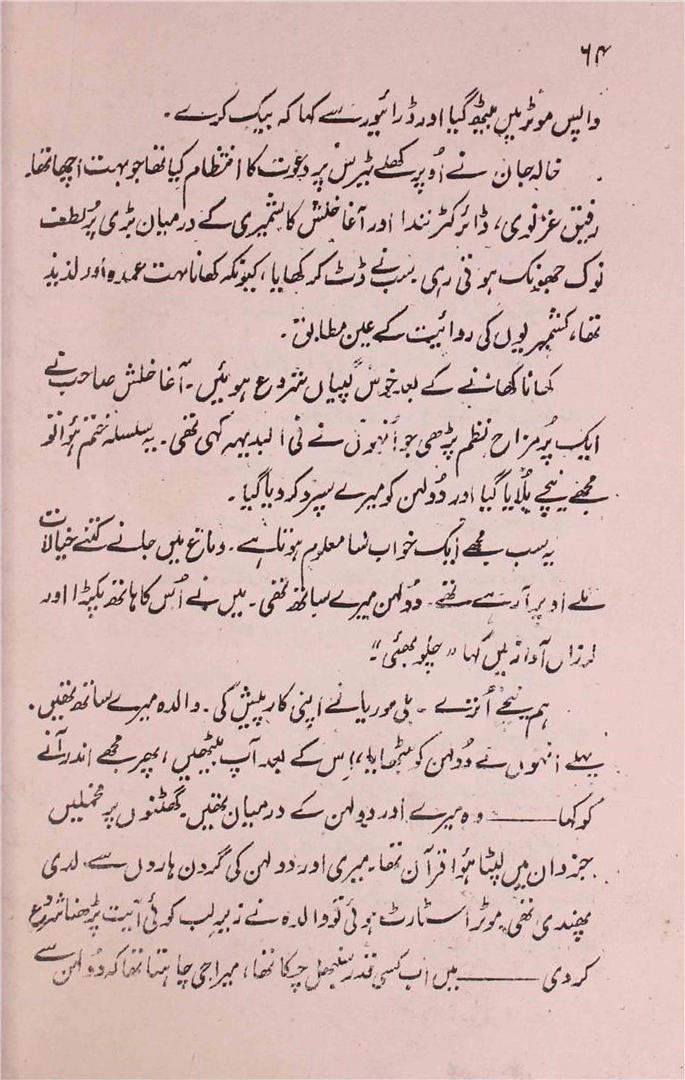 ۶۴
واپس موٹر میں بیٹھ گیا اور ڈرائیور سے کہا کہ بیک کرے۔
خالہ جان نے اُوپر کھلے ٹیرس پر دعوت کا انتظام کیا تھا جو بہت اچھا تھا۔
رفیق غزنوی، ڈائرکٹر نندا اور آغا خلش کاشمیری کے درمیان بڑی پُر لطف
نوک جھونک ہوتی رہی۔ سب نے ڈٹ کر کھایا، کیونکہ کھانا بہت عمدہ اور لذیذ
تھا، کشمیریوں کی روائیت کے عین مطابق۔
کھانا کھانے کے بعد خوش گپیاں شروع ہوئیں۔ آغا خلش صاحب نے
ایک پُر مزاح نظم پڑھی جو اُنہوں نے فی البدیہہ کہی تھی۔ یہ سلسلہ ختم ہؤا تو
مجھے نیچے بُلایا گیا اور دُولہن کو میرے سپرد کر دیا گیا۔
یہ سب مجھے ایک خواب سا معلوم ہوتا ہے۔ دماغ میں جانے کتنے خیالات
تلے اوپر آ رہے تھے۔ دولہن میرے ساتھ تھی۔ میں نے اُس کا ہاتھ پکڑا اور
لرزاں آواز میں کہا "چلو بھئی"۔
ہم نیچے اُترے۔ بلی موریا نے اپنی کار پیش کی۔ والدہ میرے ساتھ تھیں۔
پہلے اُنہوں نے دُولہن کو بٹھایا، اِس کے بعد آپ بیٹھیں، پھر مجھے اندر آنے
کو کہا ——— وہ میرے اور دولہن کے درمیان تھیں۔ گھٹنوں پر مخملیں
جزدان میں لپٹا ہؤا قرآن تھا۔ میری اور دولہن کی گردن ہاروں سے لدی
پھندی تھی۔ موٹر اسٹارٹ ہوئی تو والدہ نے زیرِ لب کوئی آیت پڑھنا شروع
کر دی ——— میں اب کسی قدر سنبھل چکا تھا، میرا جی چاہتا تھا کہ دُولہن سے